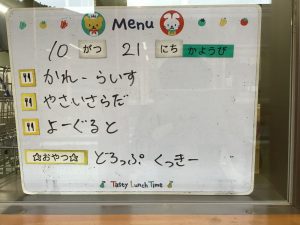 Menu
10 がつ 21 にち かようび
かれーらいす
やさいさらだ
よーぐると
☆おやつ☆ どろっぷ くっきー
Tasty Lunch Time